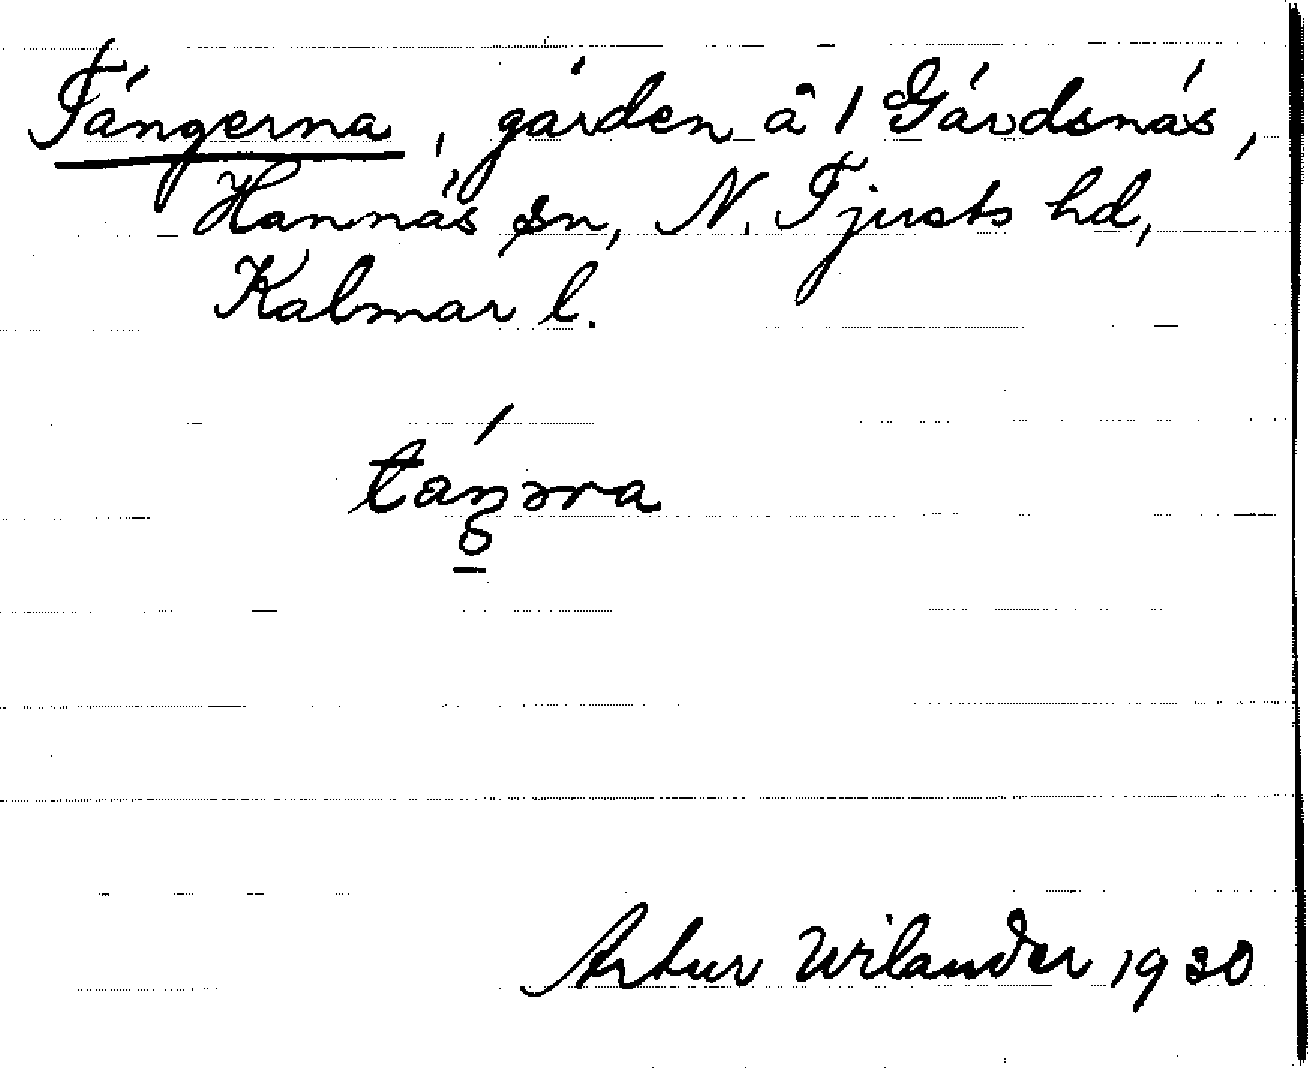 Tängerna, gården å 1 Gärdsnäs,
Hannäs sn, N. Tjusts hd,
Kalmar l.
Artur Wilander 1930